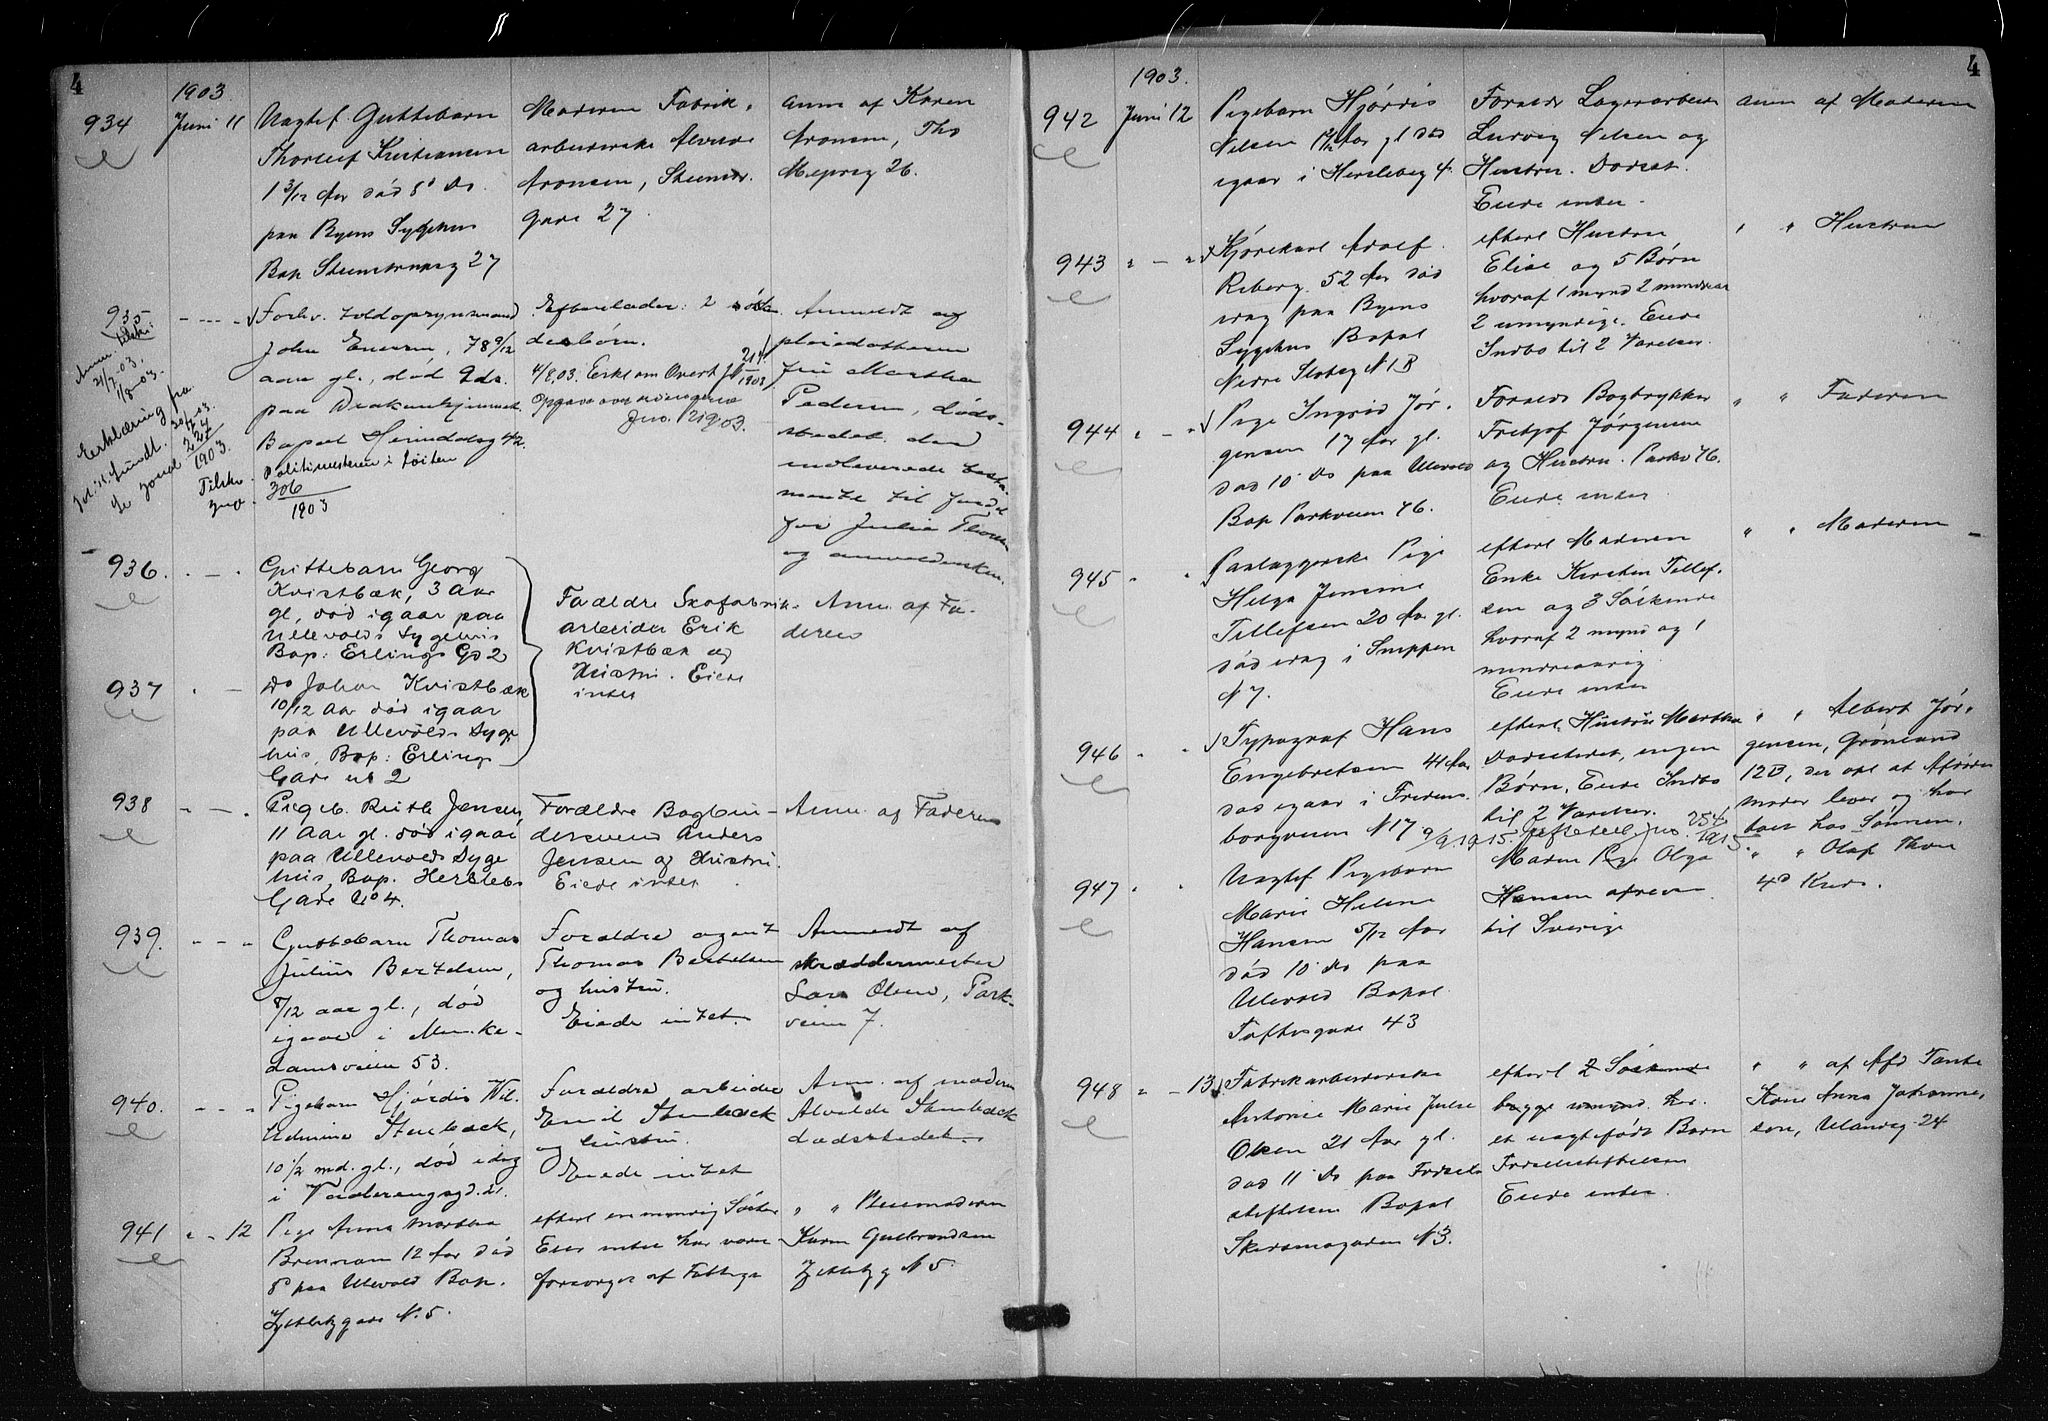 4
1903.
934
Juni 11
Uægtef. Guttebarn
Thorleif Kristiansen
1 3/12 Aar død 8' ds.
paa Byens Sygehus
Bop Steenstrupsg 27
Moderen Fabrik-
arbeiderske Alvilde
Aronsen, Steenstr.
gade 27.
Anm. af Karen
Aronsen, Ths
Meyersg 26.
935
Anm.
21/7-03.
1/8-03.
Erklæring fra
Tilskr.
227
1903.
Forhv. toldopsynsmand
John Enersen, 78 9/12
aar gl., død 9ds.
paa Diakonhjemmet.
Bopæl Heimdalsg 42.
Politimesteren i Løiten
306
1903
Efterlader: 2 søsken-
desbørn.
4/8.03. Erkl om Overt
217
1903
Anmeldt af
pleiedatteren
frk Martha
Pedersen, Døds-
stedet. den
indleverede testa-
mente til
for Julie
og anmeldersken.
936.
Guttebarn Georg
Kvistbæk, 3 Aar
gl., død igaar paa
Ullevolds Sygehus
Bop: Erlings Gd 2
937
Do Johan Kvistbæk
10/12 Aar død igaar
paa Ullevolds Syge
hus, Bop: Erlings
Gade no 2
Forældre Skofabrik-
arbeider Erik
Kvistbæk og
Hustru. Eiede
intet
Anm. af Fa-
deren
938
Pigeb. Ruth Jensen
11 Aar gl. død igaar
paa Ullevolds Syge
hus, Bop. Herslebs
Gade No 4.
Forældre Bogbin-
dersvend Anders
Jensen og Hustru.
Eiede intet
Anm. af Faderen
939.
Guttebarn Thomas
Julius Bertelsen,
8/12 aar gl., død
igaar i Munke-
damsveien 53.
Forældre agent
Thomas Bertelsen
og hustru.
Eiede intet.
Anmeldt af
skræddermester
Lars Olsen, Park-
veien 7.
940.
Pigebarn Hjørdis Wil-
helmine Stenbæck,
10 1/2 md. gl., død idag
i Vaalerengsgd. 21.
Forældre arbeider
Emil Stenbæck
og hustru.
Eiede intet
Anm. af moderen
Alvilde Stenbæck
dødsstedet.
941
" - 12
Pige Anna Martha
Brennom 12 Aar død
8' paa Ullevold Bop.
Jyttebyggade N. 5.
efterl en myndig Søster
Eier intet har været
forsørget af Fattigv
" " Pleiemoderen
Karen Gulbrandsen
N 5.
4
1903.
942
Juni 12
Pigebarn Hjørdis
Nilsen 1 Aar gl død
igaar i Herslebsg 4.
Forældr Lagerarbeider
Ludvig Nilsen og
Hustru. Dødsst.
Eiede intet.
Anm af Moderen
943
Kjørekarl Adolf
Riberg 52 Aar død
idag paa Byens
Sygehus Bopæl
Nedre Slotsg N 1 B
efterl Hustru
Elise og 5 Børn
hvoraf 1 mynd 2 mindreaar
2 umyndige. Eiede
Indbo til 2 Værelser.
" " Hustruen
944
Pige Ingrid Jør-
gensen 17 Aar gl.
død 10' ds paa Ullevold
Bop Parkveien 76.
Forældr Bogtrykker
Fritjof Jørgensen
og Hustru. Parkv 76.
Eiede intet
" " Faderen
945
Paalæggerske Pige
Helga Jensine
Tellefsen 20 Aar gl.
død idag i Smuppen
N 7.
efterl Moderen
Enke Kirsten Tellef-
sen og 3 Søskende
hvoraf 2 mynd og 1
mindreaarig
Eiede intet
" " Moderen
946
Typograf Hans
Engebretsen 41 Aar
død igaar i Fredens-
borgveien N 17
efterl. Hustru Martha
Dødsstedet, ingen
Børn. Eiede Indbo
til 2 Værelser.
9/9.1915.
254
1915
" " Albert Jør-
gensen, Grønland
12B, der opl at Afdødes
moder lever og har
boet hos Sønnen.
947
Uægtef Pigebarn
Marie Helene
Hansen 5/12 Aar
død 10' ds paa
Ullevold Bopæl
Toftesgade 43
Moren Pige Olga
Hansen afreist
til Sverige
" " Olaf Thon
4d Kreds.
948
" - 13
Fabrikarbeiderske
Antonie Marie Julie
Olsen 21 Aar gl.
død 11' ds paa Fødsels
stiftelsen Bopæl
Skedsmogaden N 3.
efterl 2 Søskende
begge umynd. har
et uægtefødt Barn
Fødselsstiftelsen
Eiede intet.
" " af Afd Tante
Kone Anna Johanne-
sen, Ulandsg 24